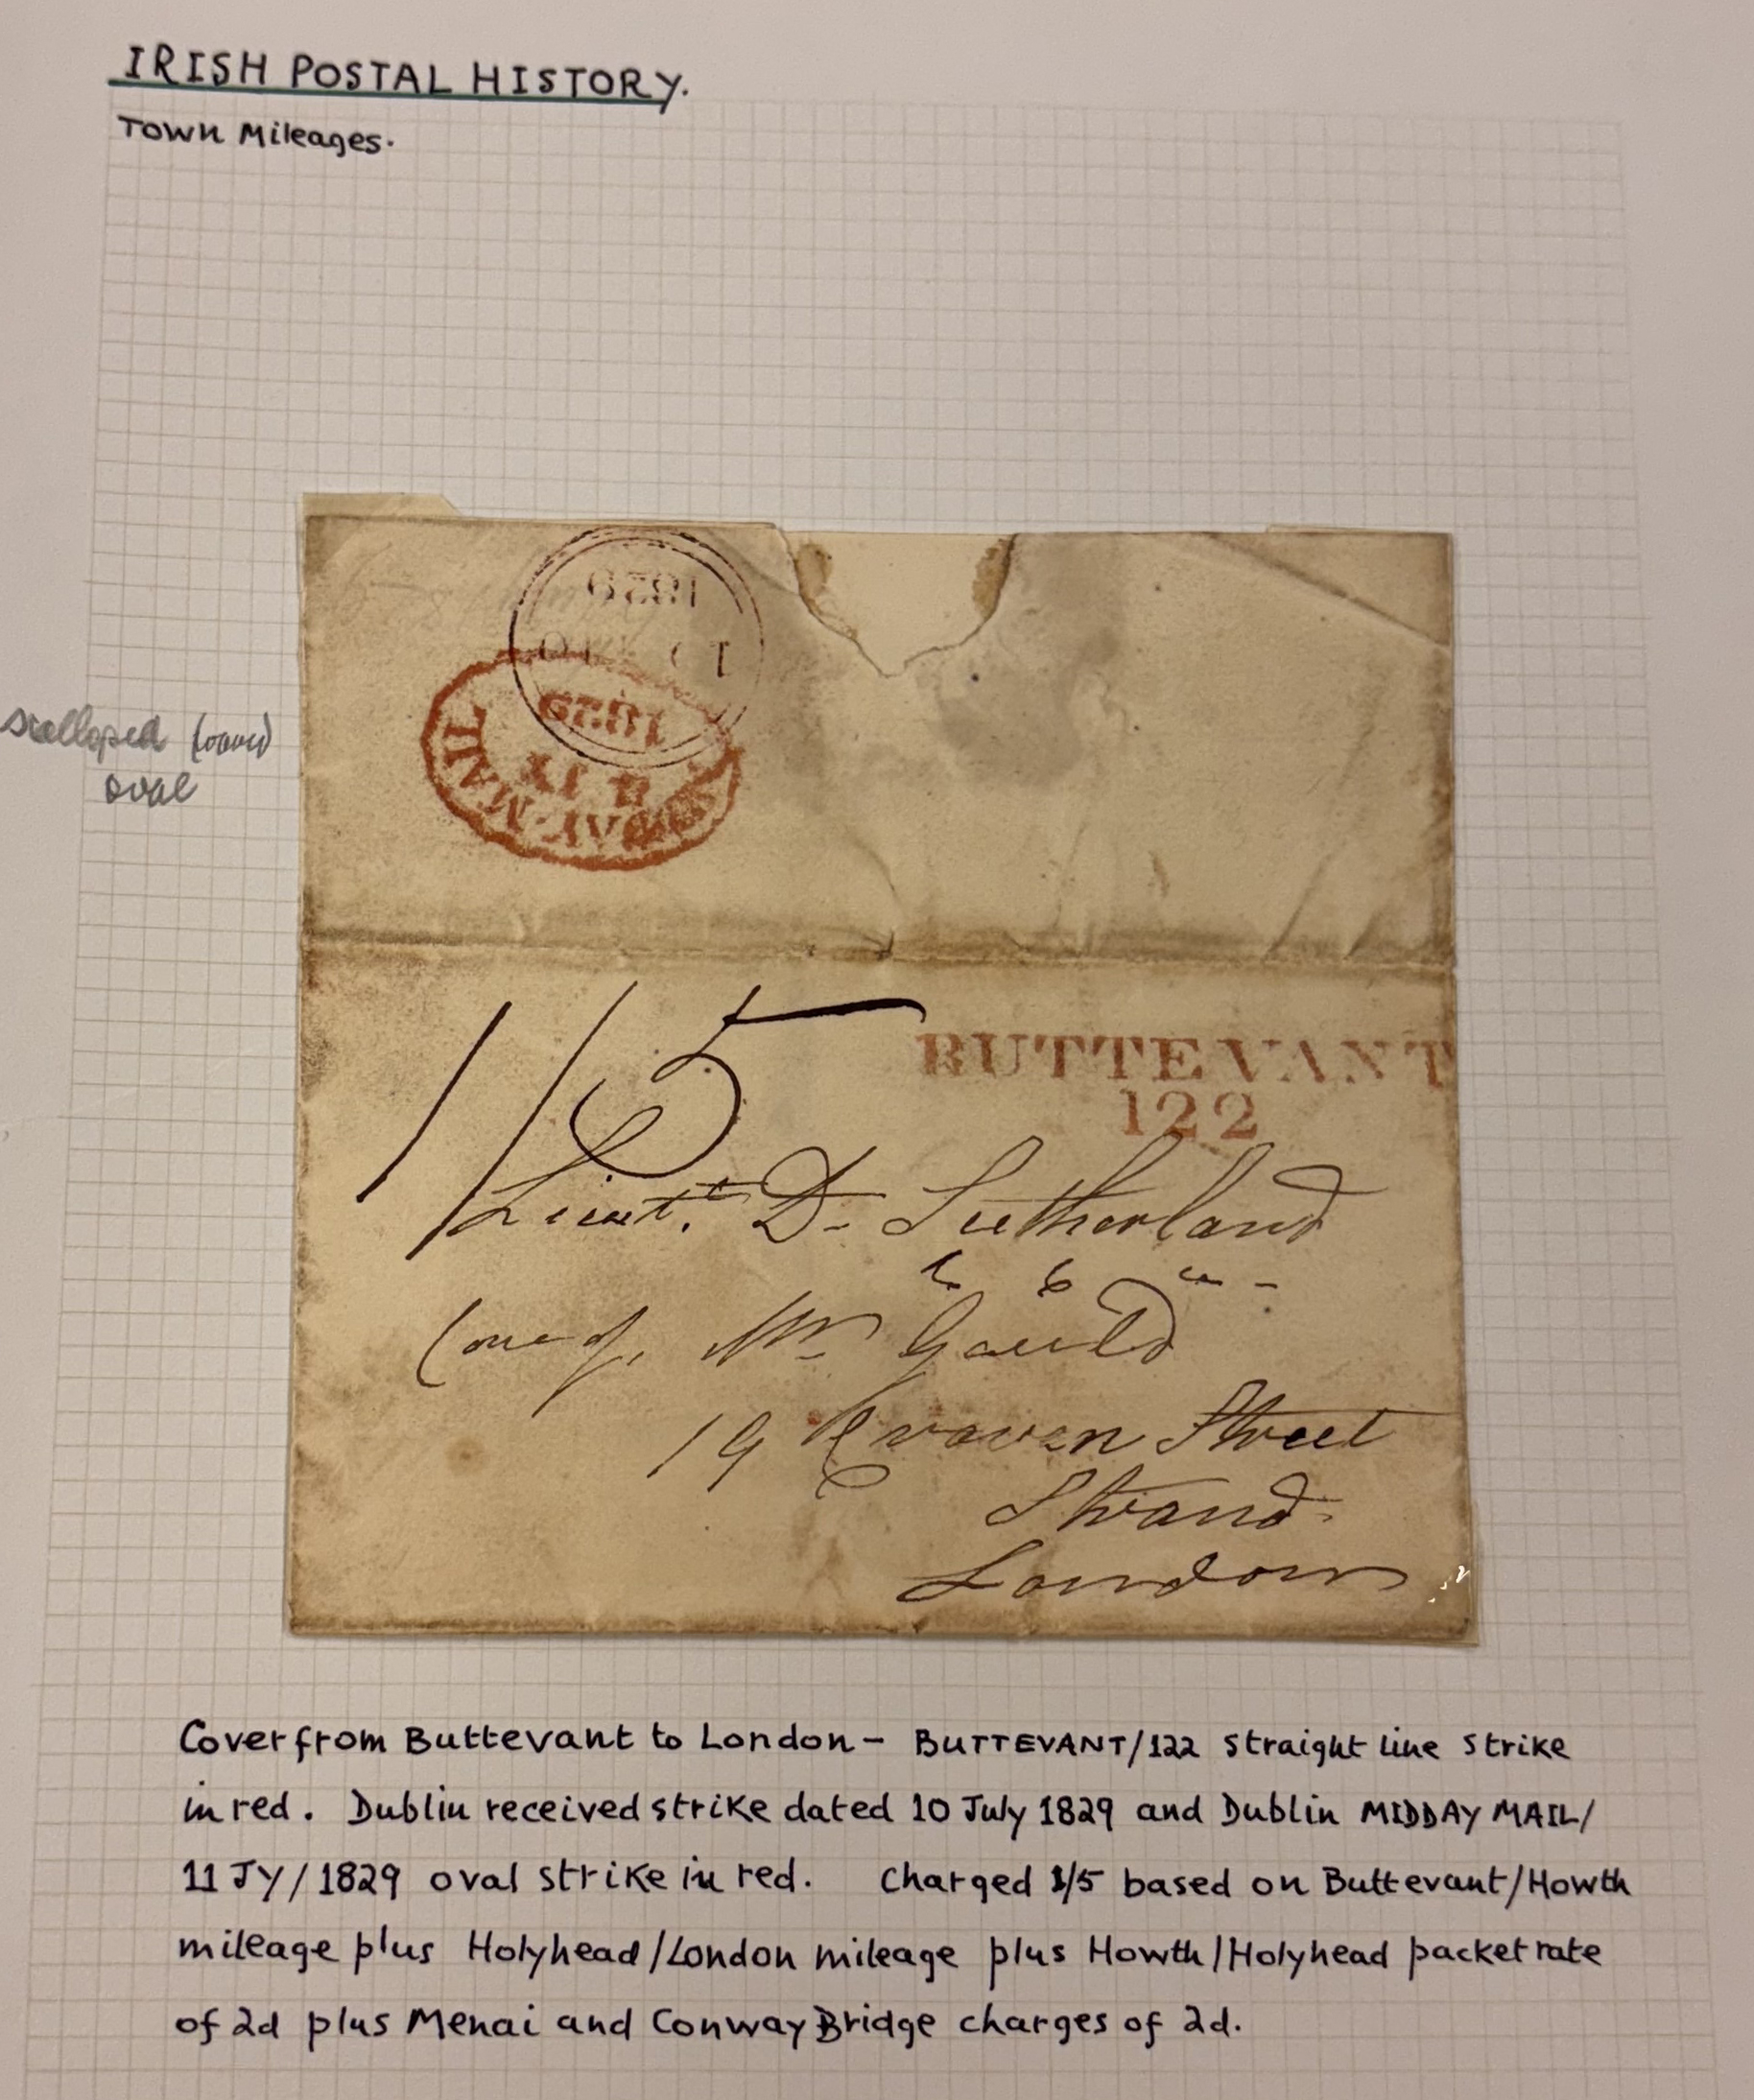 IRISH POSTAL HISTORY.
Town Mileages.
1829
10
1829
11 JY
DAY-MAIL
scalloped
oval
1/5
BUTTEVANT
122
Lieut. D. Sutherland
Care of, Mr Gauld
19 Craven Street
Strand.
London
Cover from Buttevant to London - BUTTEVANT/122 straight line strike
in red. Dublin received strike dated 10 July 1829 and Dublin MIDDAY MAIL/
11 JY/1829 oval strike in red. Charged 1/5 based on Buttevant/Howth
mileage plus Holyhead/London mileage plus Howth/Holyhead packet rate
of 2d plus Menai and Conway Bridge charges of 2d.